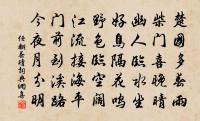 楚國多春雨
柴門喜晚晴
幽人臨水坐
好鳥隔花鳴
野色臨空闊
江流接海平
門前到溪路
今夜月分明
任翻春晴詩詞典網